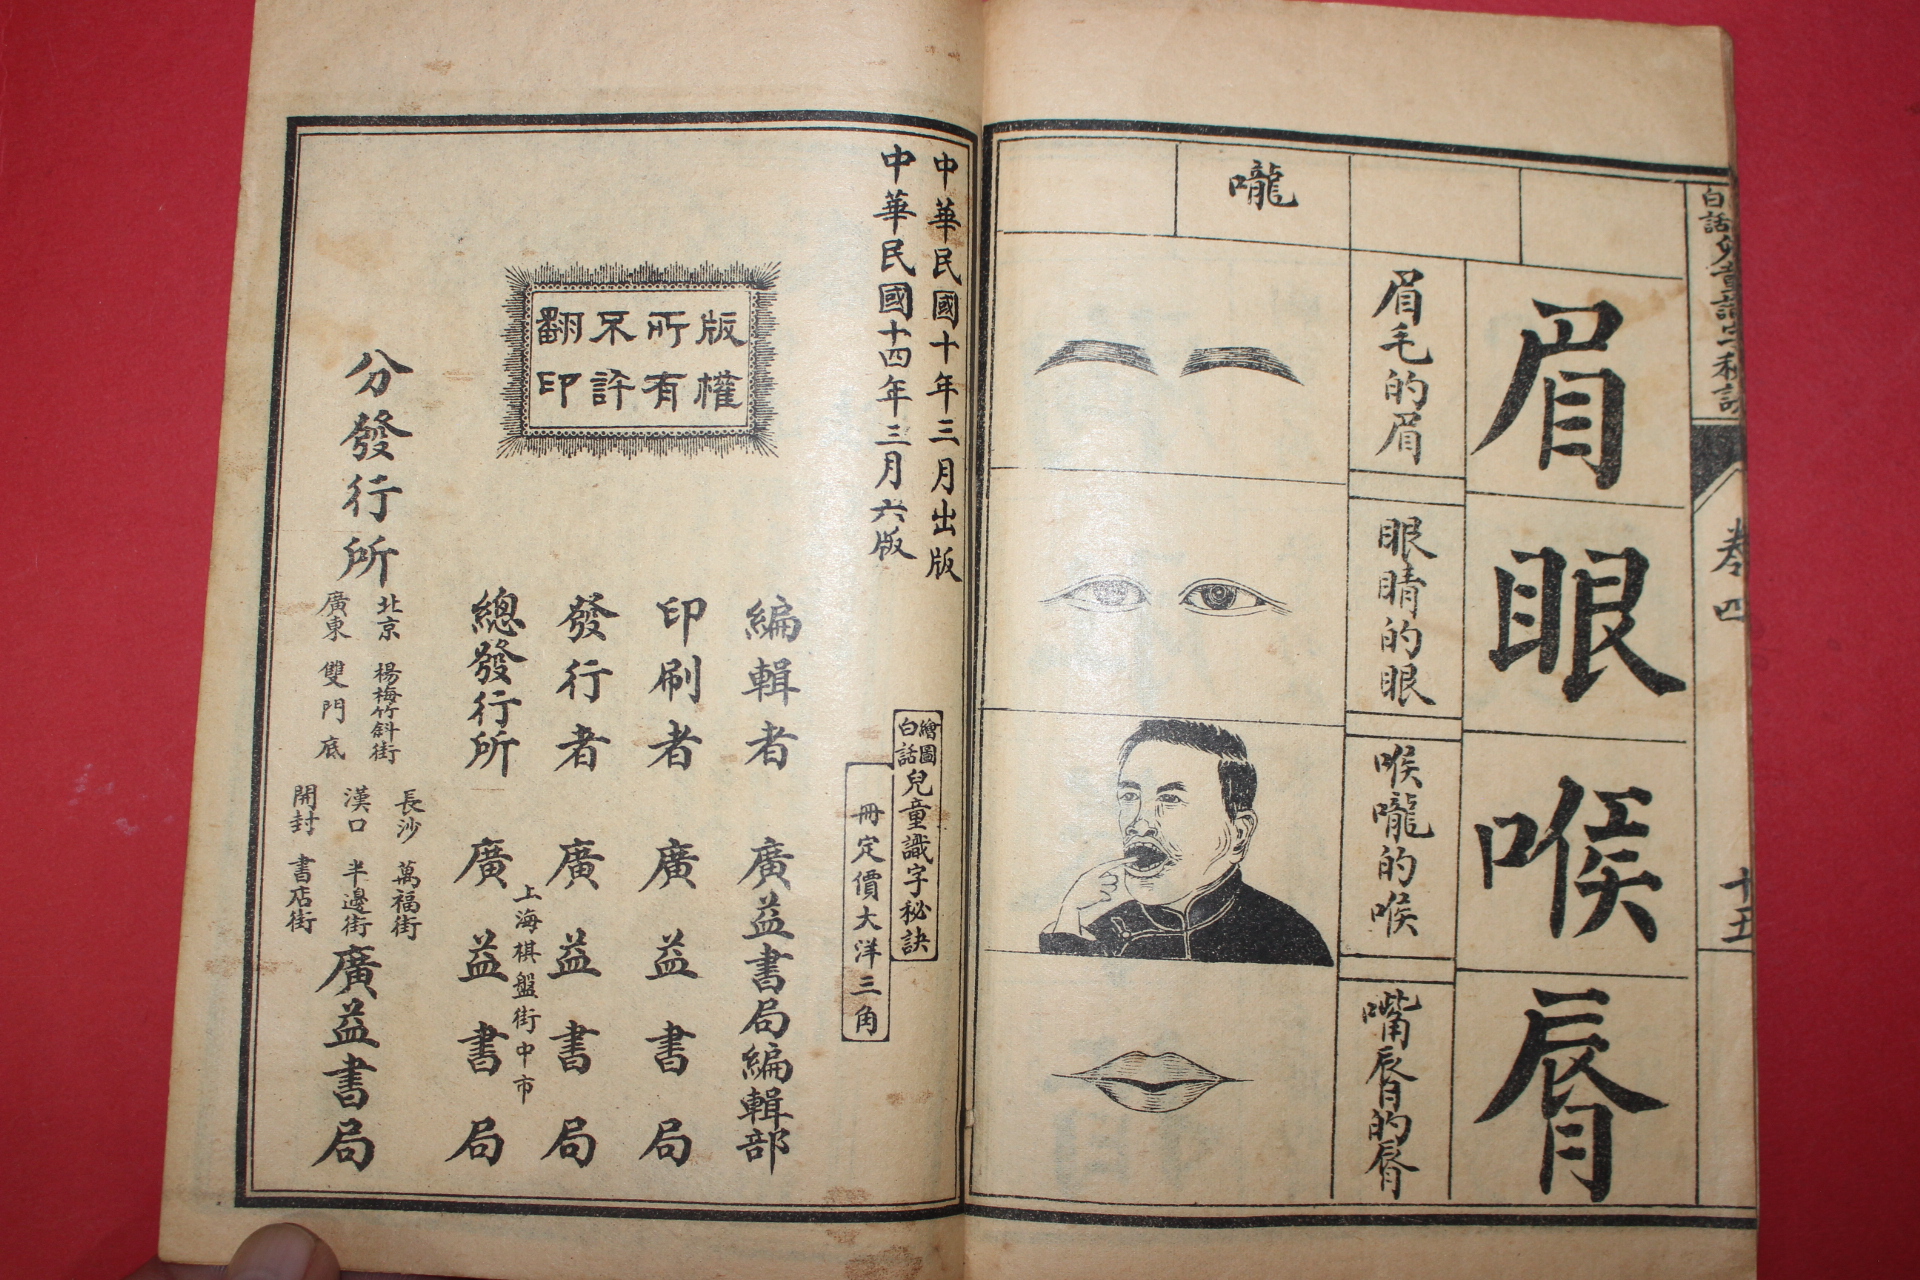 白話兒童識字秘訣
卷四
十五
嚨
眉
眼
喉
唇
眉毛的眉
眼睛的眼
喉嚨的喉
嘴唇的唇
中華民國十年三月出版
中華民國十四年三月六版
繪圖白話兒童識字秘訣
冊定價大洋三角
版權
所有
不許
翻印
編輯者 廣益書局編輯部
印刷者 廣益書局
發行者 廣益書局
上海棋盤街中市
總發行所 廣益書局
分發行所
北京 楊梅竹斜街
廣東 雙門底
長沙 萬福街
漢口 半邊街
開封 書店街
廣益書局